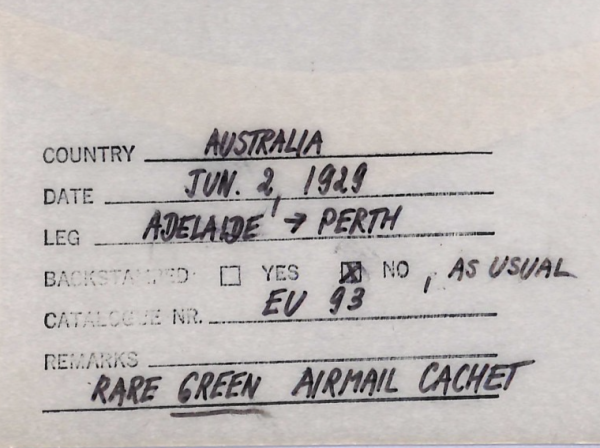 COUNTRY AUSTRALIA
DATE JUN. 2, 1929
LEG ADELAIDE → PERTH
BACKSTAMPED: ☐ YES ☒ NO, AS USUAL
CATALOGUE NR. EU 93
REMARKS
RARE GREEN AIRMAIL CACHET